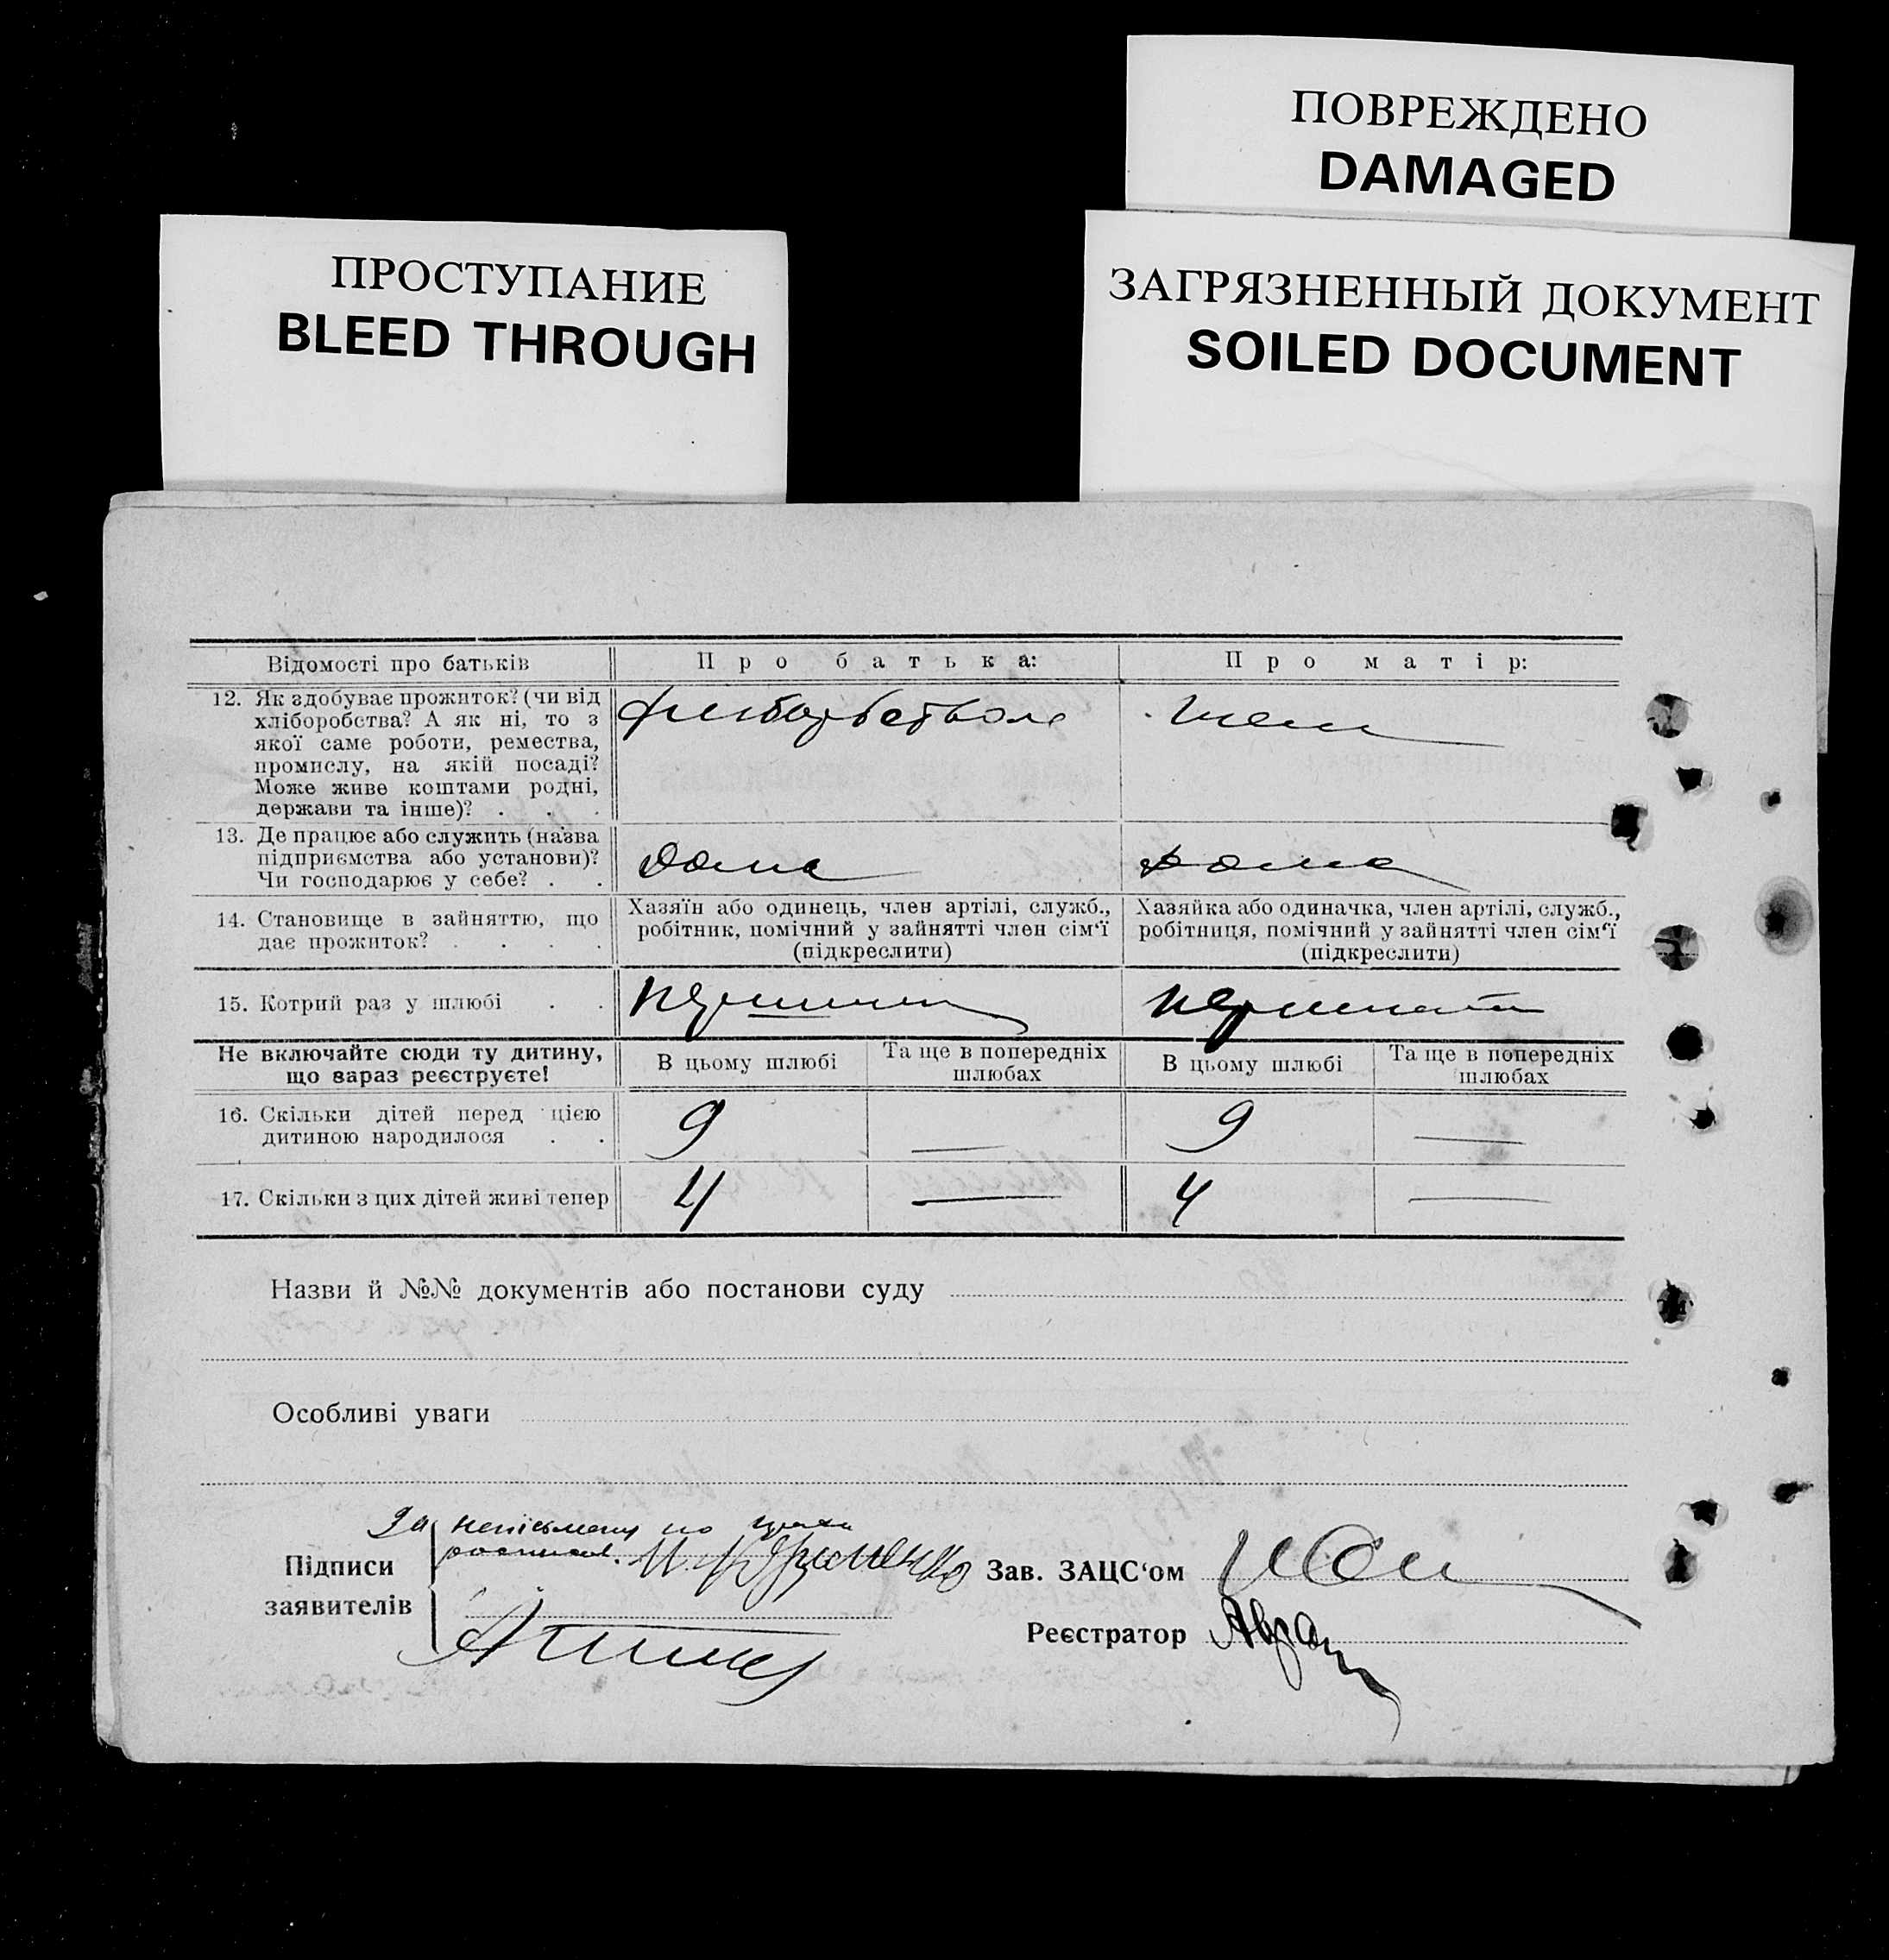 ПОВРЕЖДЕНО
DAMAGED
ПРОСТУПАНИЕ
BLEED THROUGH
ЗАГРЯЗНЕННЫЙ ДОКУМЕНТ
SOILED DOCUMENT
Відомості про батьків
Про батька:
Про матір:
12. Як здобуває прожиток? (чи від
хліборобства? А як ні, то з
якої саме роботи, ремества,
промислу, на якій посаді?
Може живе коштами родні,
держави та інше)? . . .
13. Де працює або служить (назва
підприємства або установи)?
Чи господарює у себе? . .
дома
дома
14. Становище в зайняттю, що
дає прожиток? . . . .
Хазяїн або одинець, член артілі, служб.,
робітник, помічний у зайнятті член сім‘ї
(підкреслити)
Хазяйка або одиначка, член артілі, служб.,
робітниця, помічний у зайнятті член сім‘ї
(підкреслити)
15. Котрий раз у шлюбі . .
Не включайте сюди ту дитину,
що зараз реєструєте!
В цьому шлюбі
Та ще в попередніх
шлюбах
В цьому шлюбі
Та ще в попередніх
шлюбах
16. Скільки дітей перед цією
дитиною народилося . .
9 — 9 —
17. Скільки з цих дітей живі тепер
4 — 4 —
Назви й №№ документів або постанови суду
Особливі уваги
За
Підписи
заявителів
Зав. ЗАЦС‘ом
Реєстратор